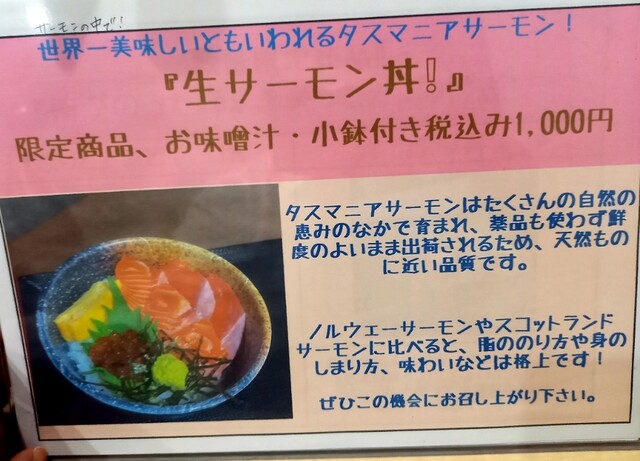 サーモンの中で!
世界一美味しいともいわれるタスマニアサーモン!
『生サーモン丼!』
限定商品、お味噌汁・小鉢付き税込み1,000円
タスマニアサーモンはたくさんの自然の
恵みのなかで育まれ、薬品も使わず鮮
度のよいまま出荷されるため、天然もの
に近い品質です。
ノルウェーサーモンやスコットランド
サーモンに比べると、脂ののり方や身の
しまり方、味わいなどは格上です!
ぜひこの機会にお召し上がり下さい。